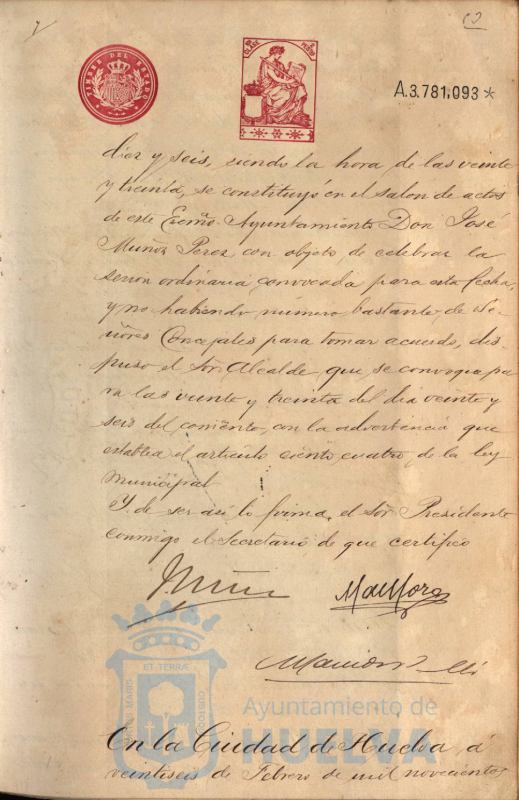 TIMBRE DEL ESTADO
A.3.781,093*
diez y seis, siendo la hora de las veinte
y treinta, se constituyó en el salon de actos
de este Excmo. Ayuntamiento Don José
Muñoz Perez con objeto de celebrar la
sesion ordinaria convocada para esta fecha,
y no habiendo número bastante de Se-
ñores Concejales para tomar acuerdo, dis-
puso el Sor. Alcalde que se convoque pa-
ra las veinte y treinta del dia veinte y
seis del corriente, con la advertencia que
establece el articulo ciento cuatro de la ley
Municipal
Y de ser asi lo firma el Sor. Presidente
conmigo el Secretario de que certifico
ET TERRÆ
MARIS
CUSTODIA
Ayuntamiento de
HUELVA
En la Ciudad de Huelva á
veintiseis de Febrero de mil novecientos